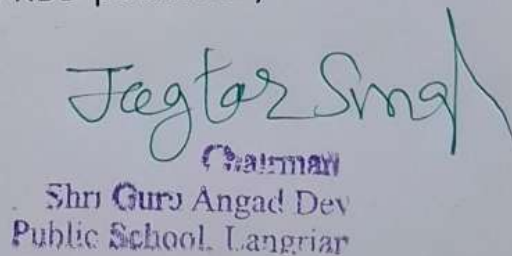 Jagtar Singh
Chairman
Shri Guru Angad Dev
Public School, Langriar